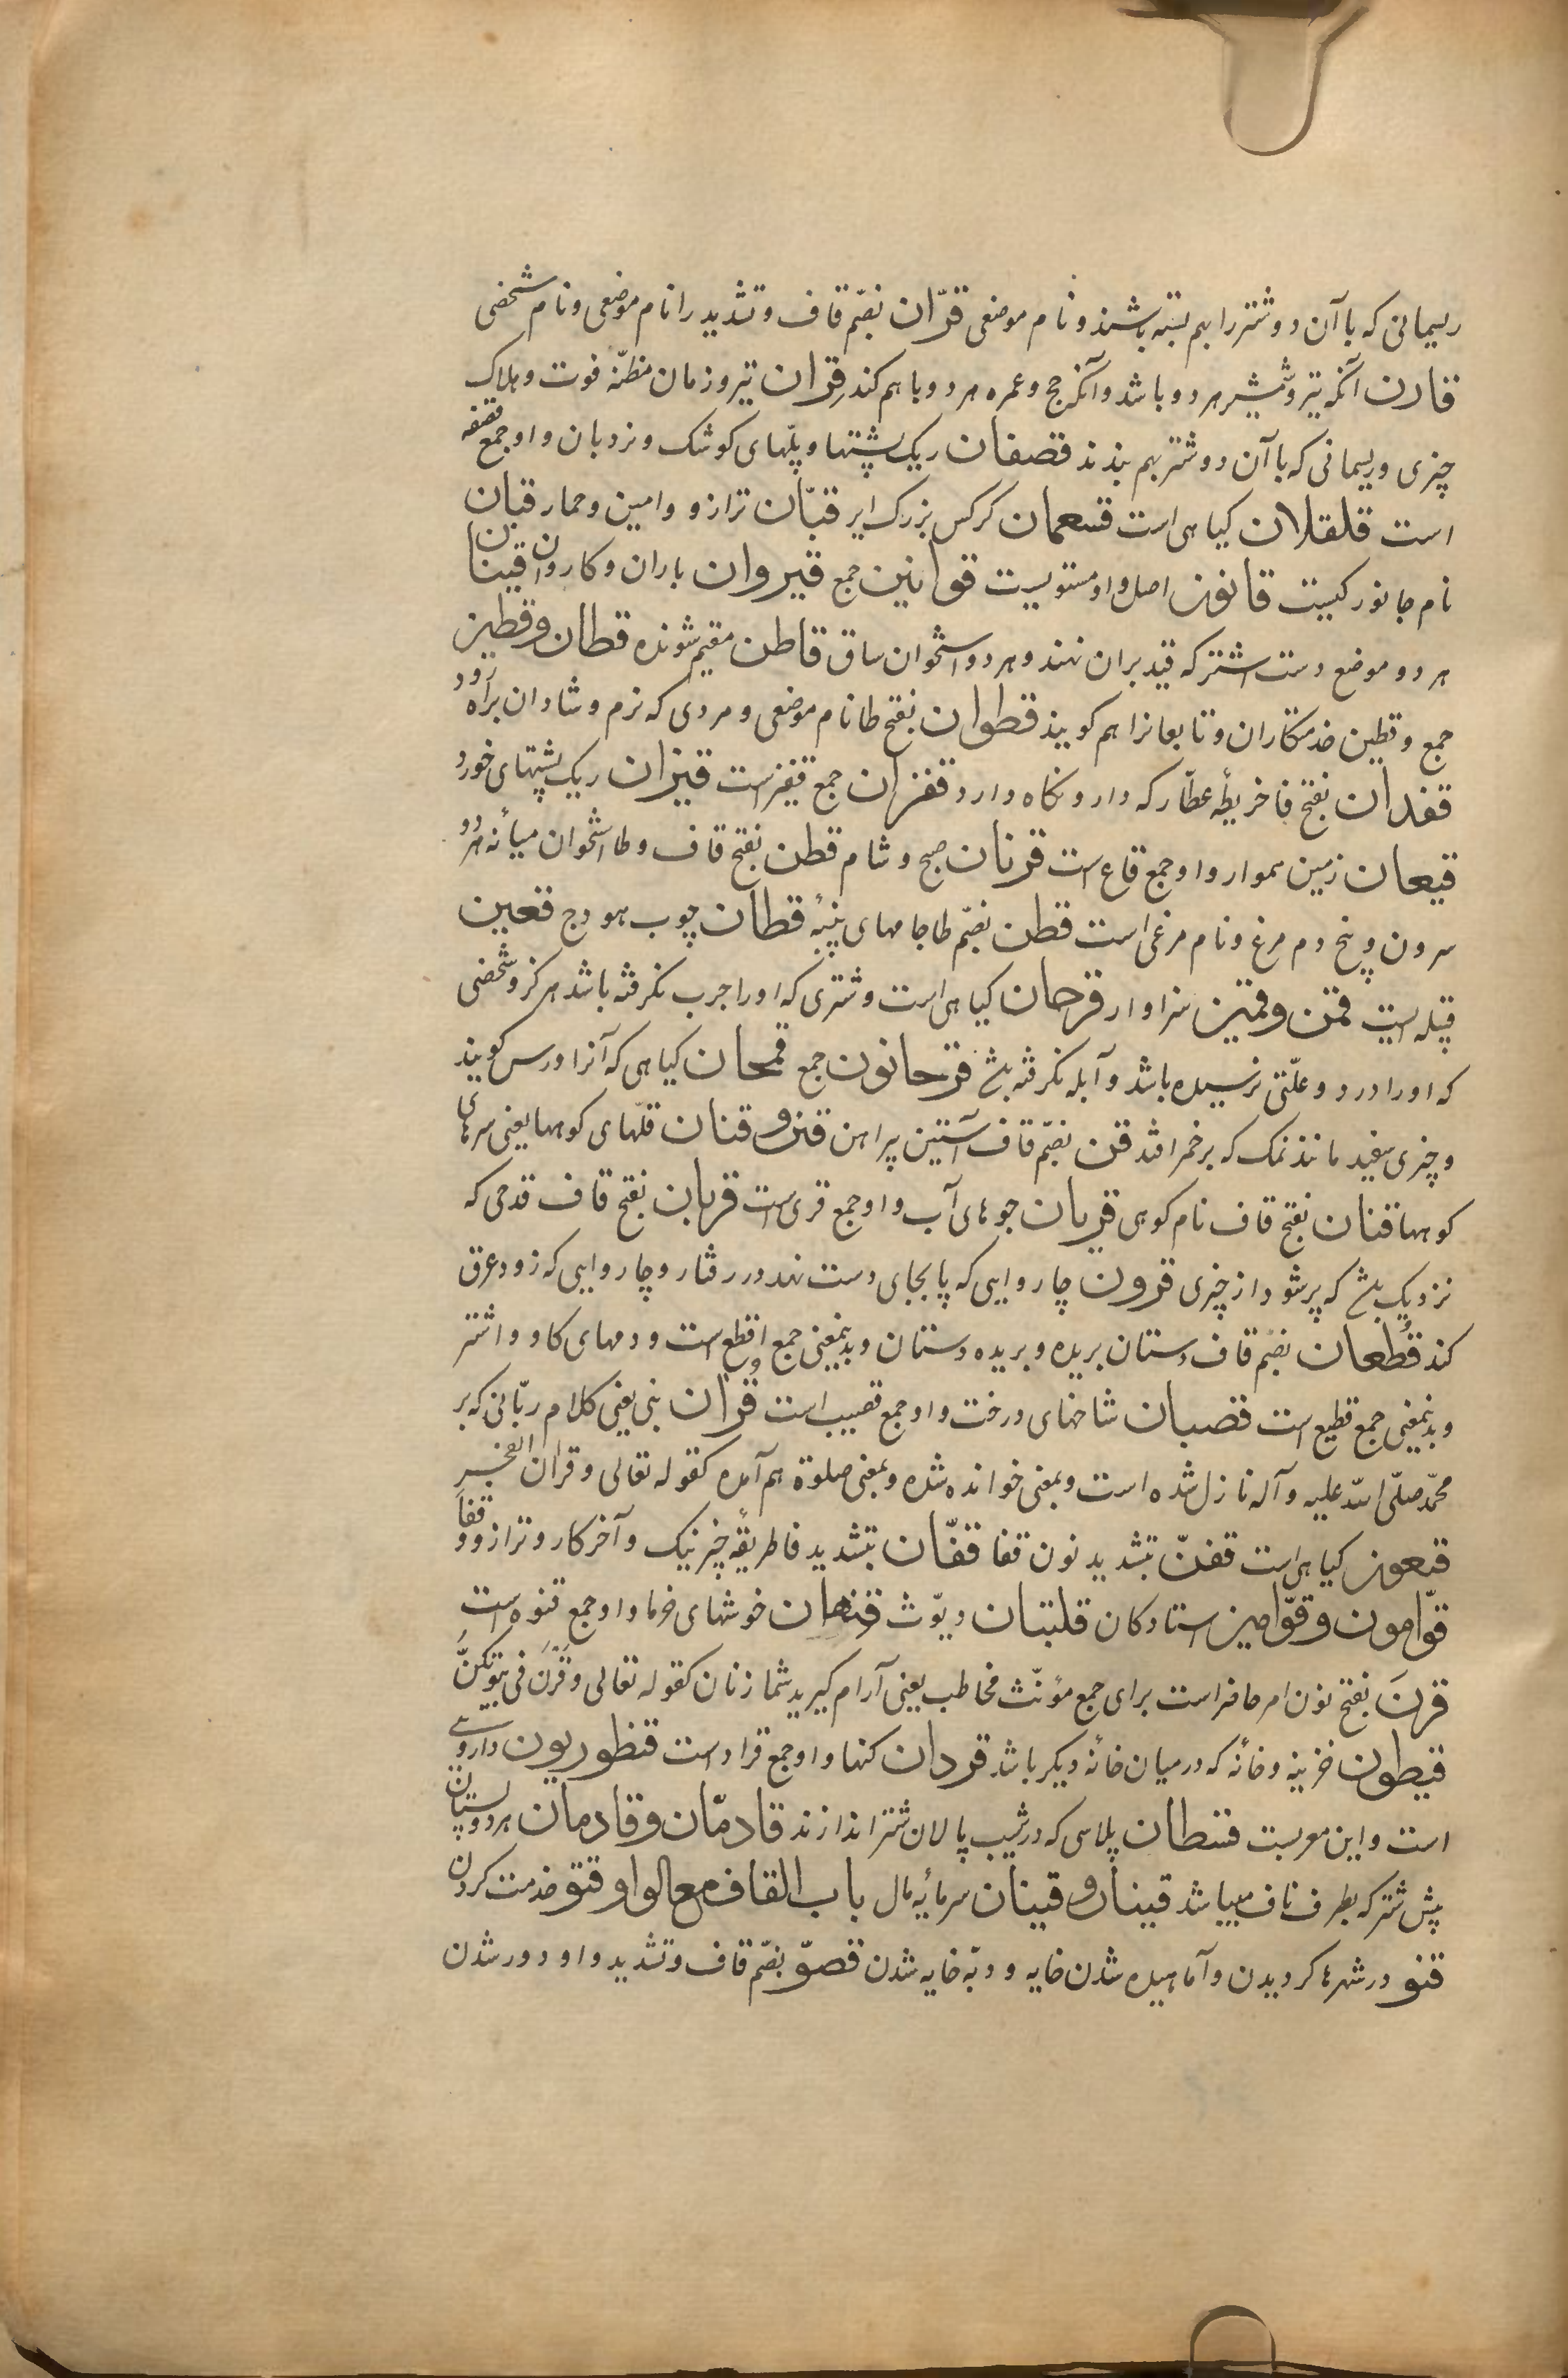 ریسمانی که با آن دو شتر را بهم بسته باشند و نام موضعی قرّان بضمّ قاف و تشدید را نام موضعی و نام شخصی
قارن آنکه تیر و شمشیر هر دو باشد و آنکه حج و عمره هر دو با هم کند قِران تیر و زمان مظنّه فوت و هلاک
چیزی و ریسمانی که با آن دو شتر بهم بندند قصفان ریک پشتها و پلّهای کوشک و نردبان و او جمع قصفه
است قلقلان کیاهی است قسعمان کرکس بزرک ایر قبّان ترازو و امین و حمار قبان
نام جانور کیست قانون اصل و او مستویست قوانین جمع قیروان باران و کاروان قینان
هر دو موضع دست اشتر که قید بران نهند و هر دو استخوان ساق قاطن مقیم شونده قطان و قطین
جمع و قطین خدمتکاران و تابعانرا هم کویند قطوان بفتح طا نام موضعی و مردی که نرم و شادان براه رود
قفدان بفتح فا خریطهٔ عطّار که دارو نکاه دارد قفزان جمع قفیز است قیزان ریک پشتهای خورد
قیعان زمین هموار و او جمع قاع است قرنان صبح و شام قطن بفتح قاف و طا استخوان میانهٔ هر دو
سرون و بیخ دم مرغ و نام مرغی است قطن بضمّ طا جامهای پنبهٔ قطان چوب هودج قعین
قبیله است قمن و قمین سزاوار قرحان کیاهی است و شتری که او را جرب نکرفته باشد هرکز و شخصی
که او را درد و علّتی نرسیده باشد و آبله نکرفته باشد قرحانون جمع قمحان کیاهی که آنرا ورس کویند
و چیزی سفید مانند نمک که بر خمر افتد قن بضمّ قاف آستین پیراهن قنن و قنان قلّهای کوهها یعنی سرهای
کوهها قنان بفتح قاف نام کوهی قریان جوهای آب و او جمع قری است قربان بفتح قاف قدحی که
نزدیک باشد که پر شود از چیزی قرون چاروایی که پا بجای دست نهد در رفتار و چاروایی که زود عرق
کند قُطعان بضم قاف دستان بریده و بریده دستان و بدینمعنی جمع اقطع است و دمهای کاو و اشتر
و بدینمعنی جمع قطیع است قصبان شاخهای درخت و او جمع قصیب است قرْان نبی یعنی کلام ربّانی که بر
محمّد صلّی الله علیه و آله نازل شده است و بمعنی خوانده شده و بمعنی صلوة هم آمده کقوله تعالی و قران الفجر
قبعون کیاهی است قفنّ بتشدید نون قفا قفّان بتشدید فا طریقهٔ چیز نیک و آخر کار و ترازو و قفا
قوّامون و قوّامین استادکان قلتبان دیّوث قنوان خوشهای خرما و او جمع قنوه است
قرنَ بفتح نون امر حاضر است برای جمع مؤنّث مخاطب یعنی آرام کیرید شما زنان کقوله تعالی وَقَرْنَ فی بُیُوتِکُنَّ
قیطون خزینه و خانهٔ که در میان خانهٔ دیکر باشد قردان کنها و او جمع قراد است قنطوریون داروئی
است و این معربست قنطان پلاسی که در شیب پالان شتر اندازند قادمّان و قادمان هر دو پستان
پیش شتر که بطرف ناف میباشد قینان و قینان سرمایهٔ مال باب القاف مع الواو قتو خدمت کردن
قنو در شهرها کردیدن و آماهیده شدن خایه و دبّه خایه شدن قصوّ بضمّ قاف و تشدید واو دور شدن